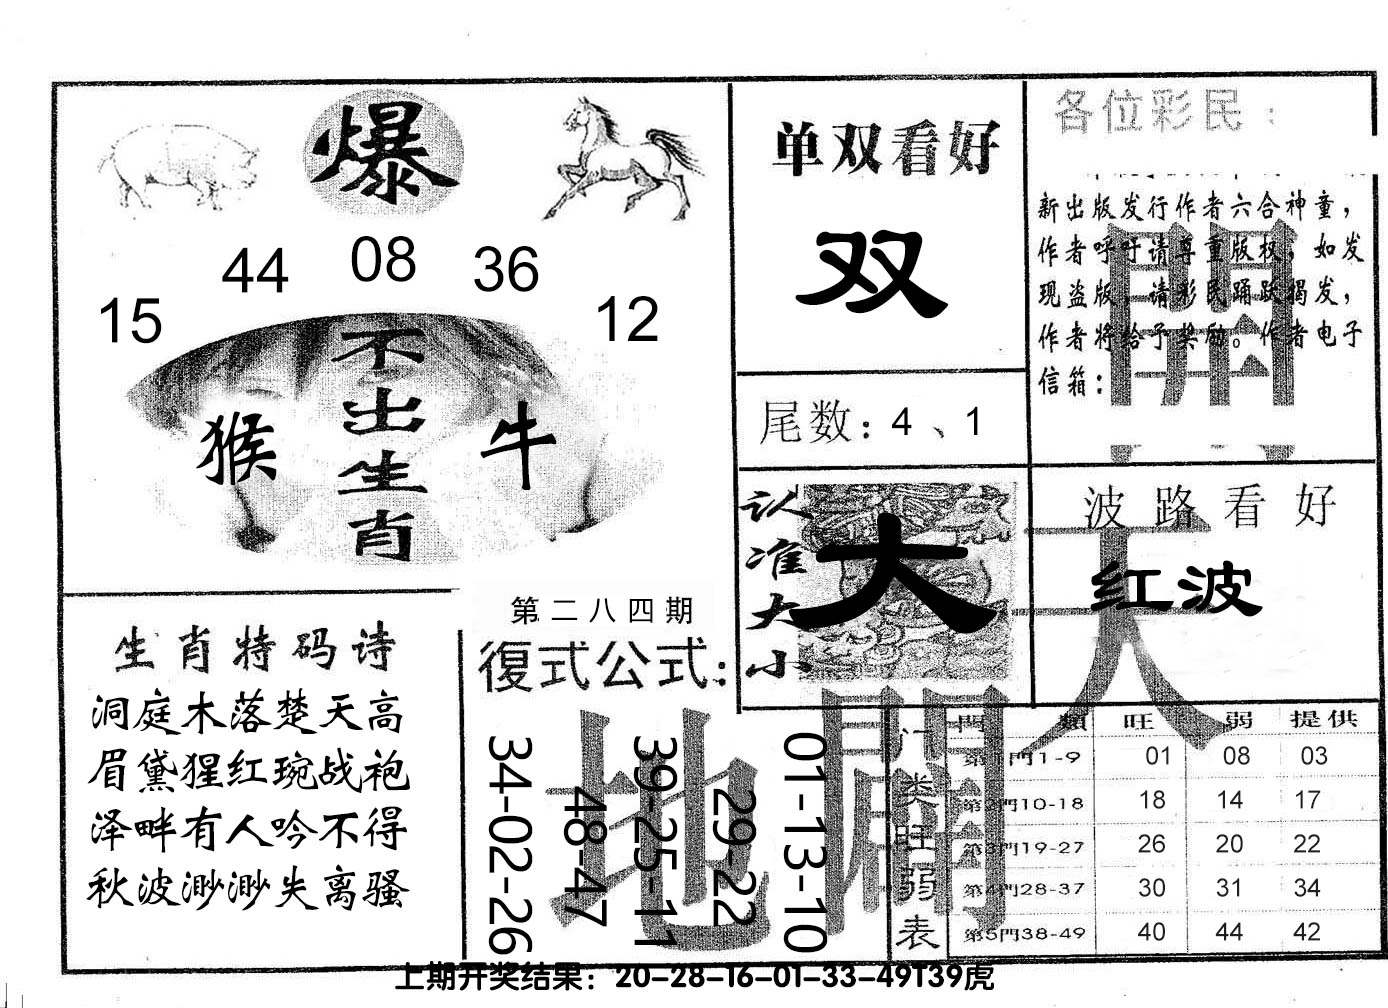 爆
15 44 08 36 12
不出生肖
猴 牛
单双看好
双
尾数：4、1
各位彩民：
新出版发行作者六合神童，
作者呼吁请尊重版权，如发
现盗版，请彩民踊跃揭发，
作者将给予奖励。作者电子
信箱：
開
认准大小
大
波路看好
红波
天
生肖特码诗
洞庭木落楚天高
眉黛猩红琬战袍
泽畔有人吟不得
秋波渺渺失离骚
第二八四期
復式公式：
34-02-26
48-47
39-25-11
29-22
01-13-10
地
門类旺弱表
門 類 旺 弱 提供
第1門1-9 01 08 03
第2門10-18 18 14 17
第3門19-27 26 20 22
第4門28-37 30 31 34
第5門38-49 40 44 42
上期开奖结果：20-28-16-01-33-49T39虎